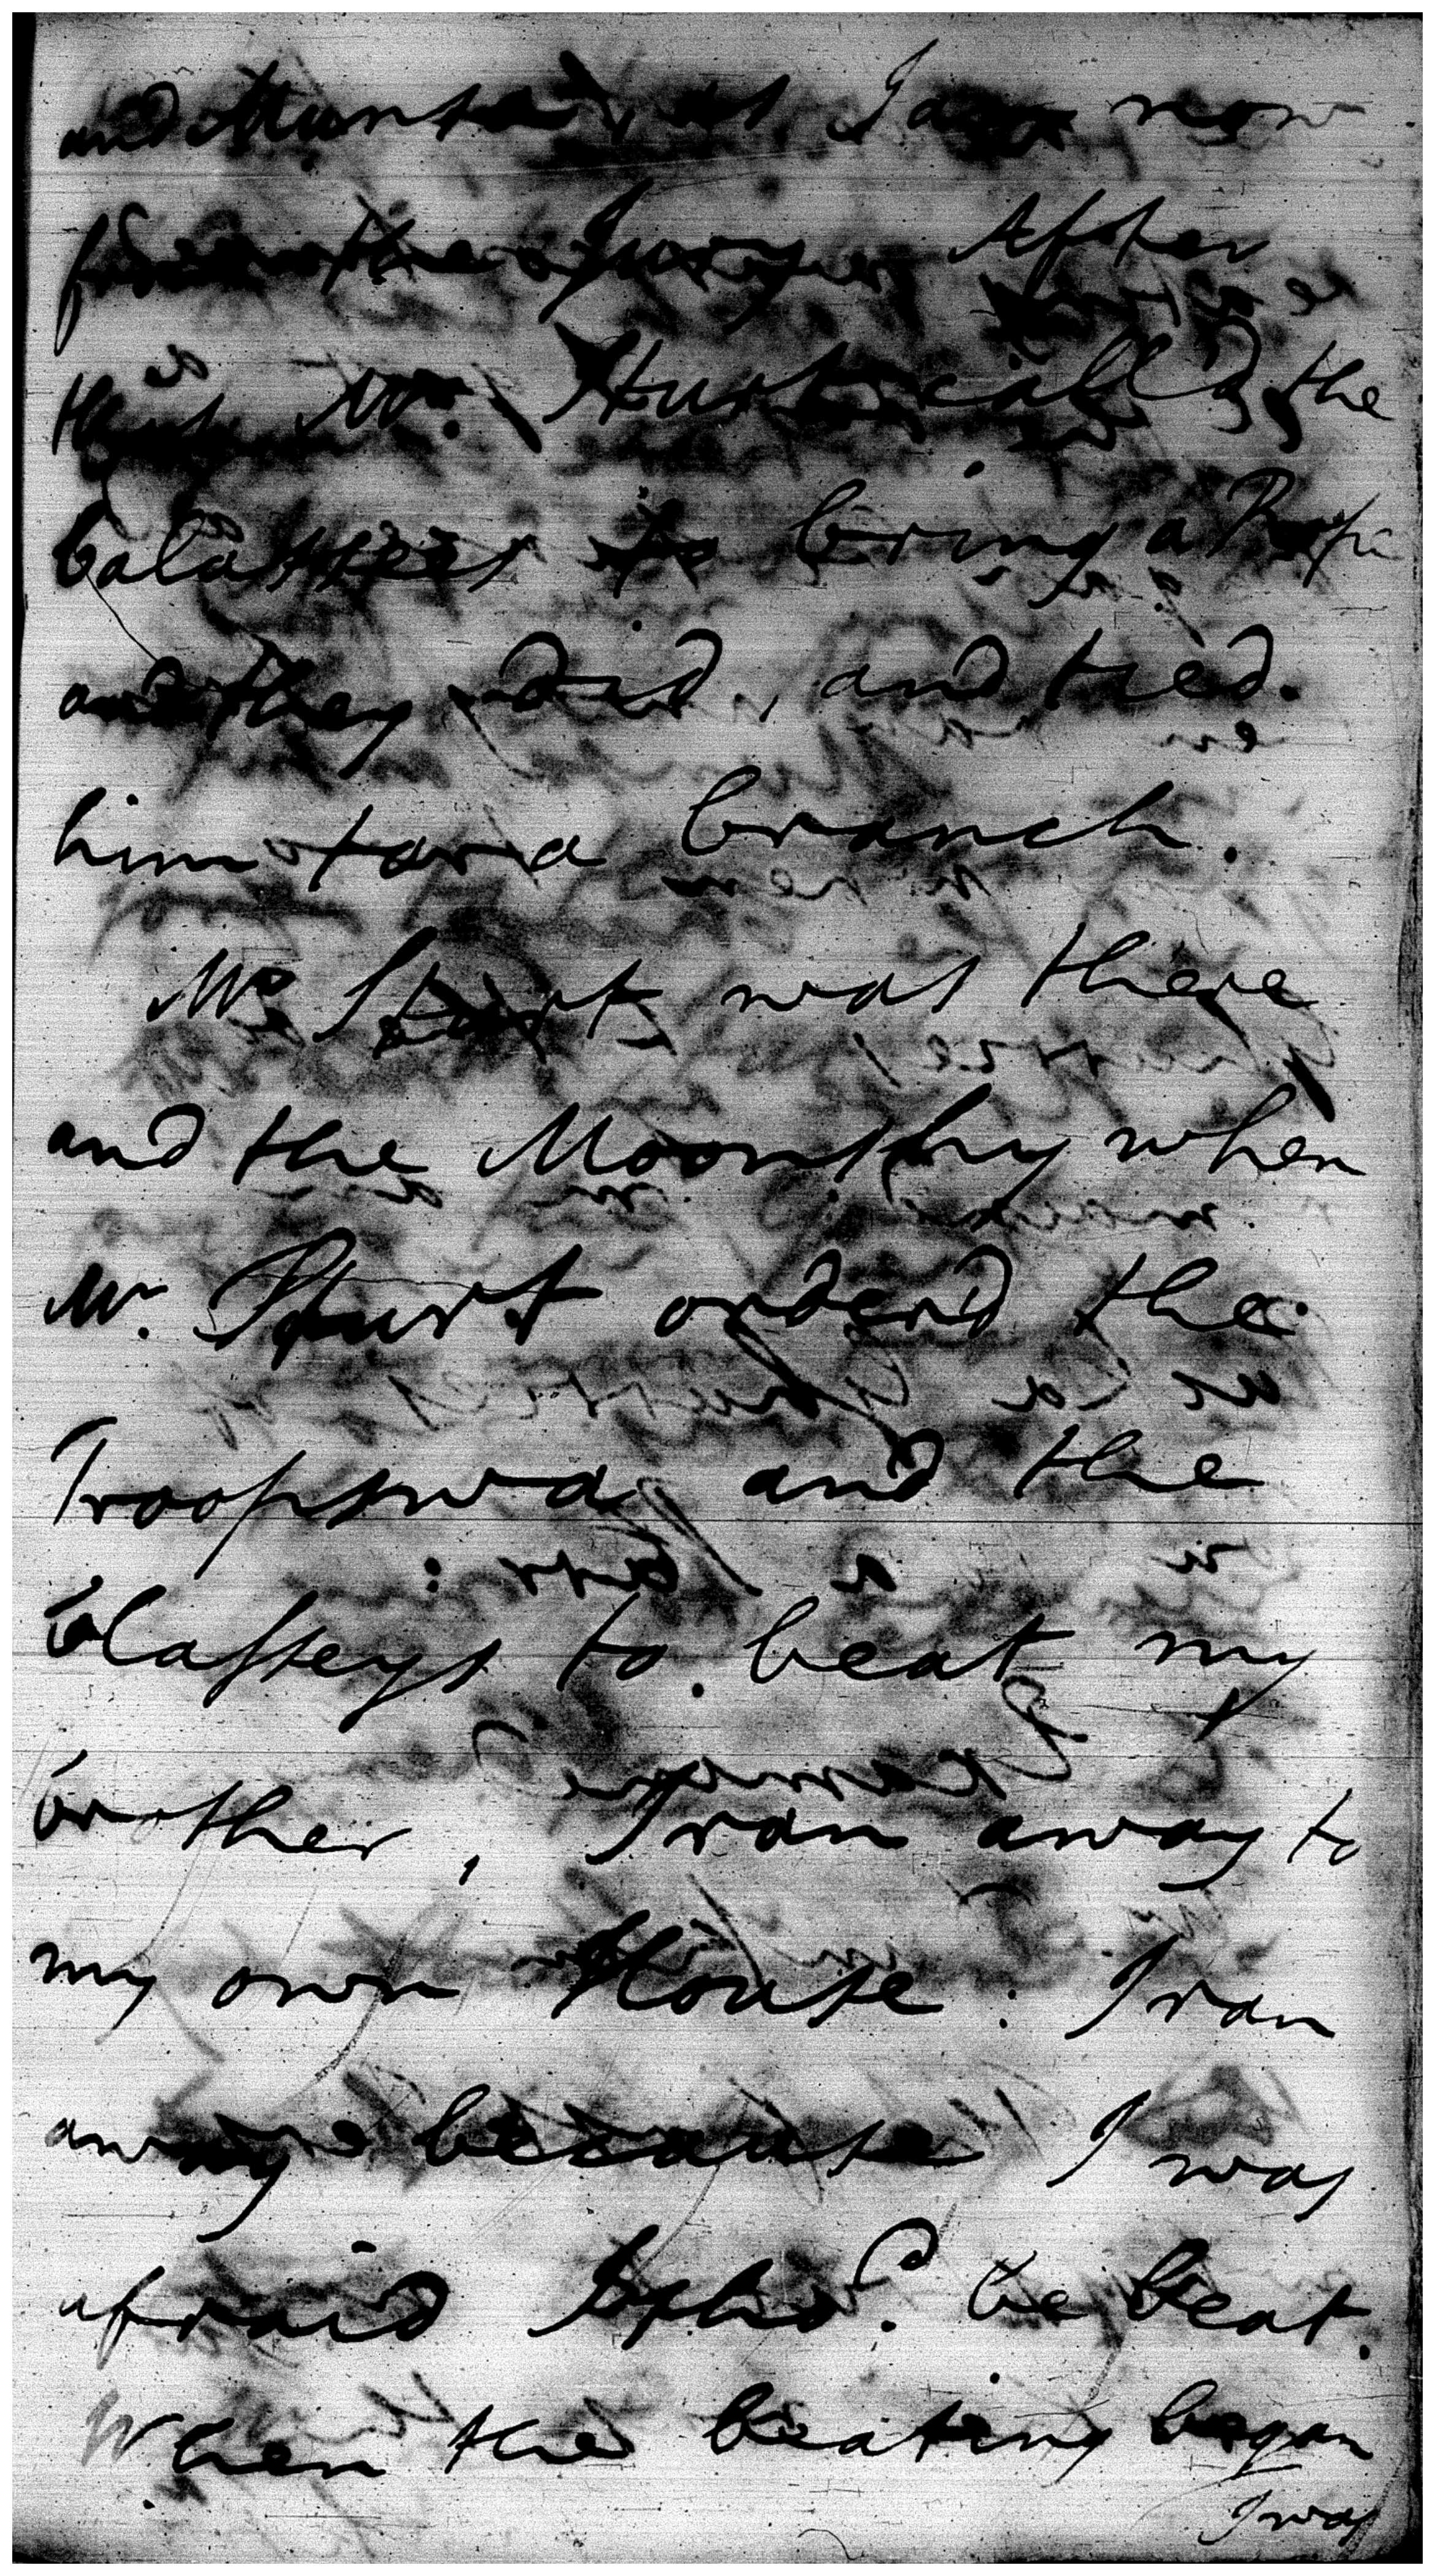 and Munsa, as I am now
from the Jury. After
this Mr. Sturt call'd the
Calassees to bring a Rope
and they did, and tied
him to a branch.
Mr Sturt was there
and the Moonshy when
Mr. Sturt orderd the
and the
Classeys to beat my
brother, I ran away to
my own House. I ran
away because I was
afraid I shd. be beat.
When the beating began
I was